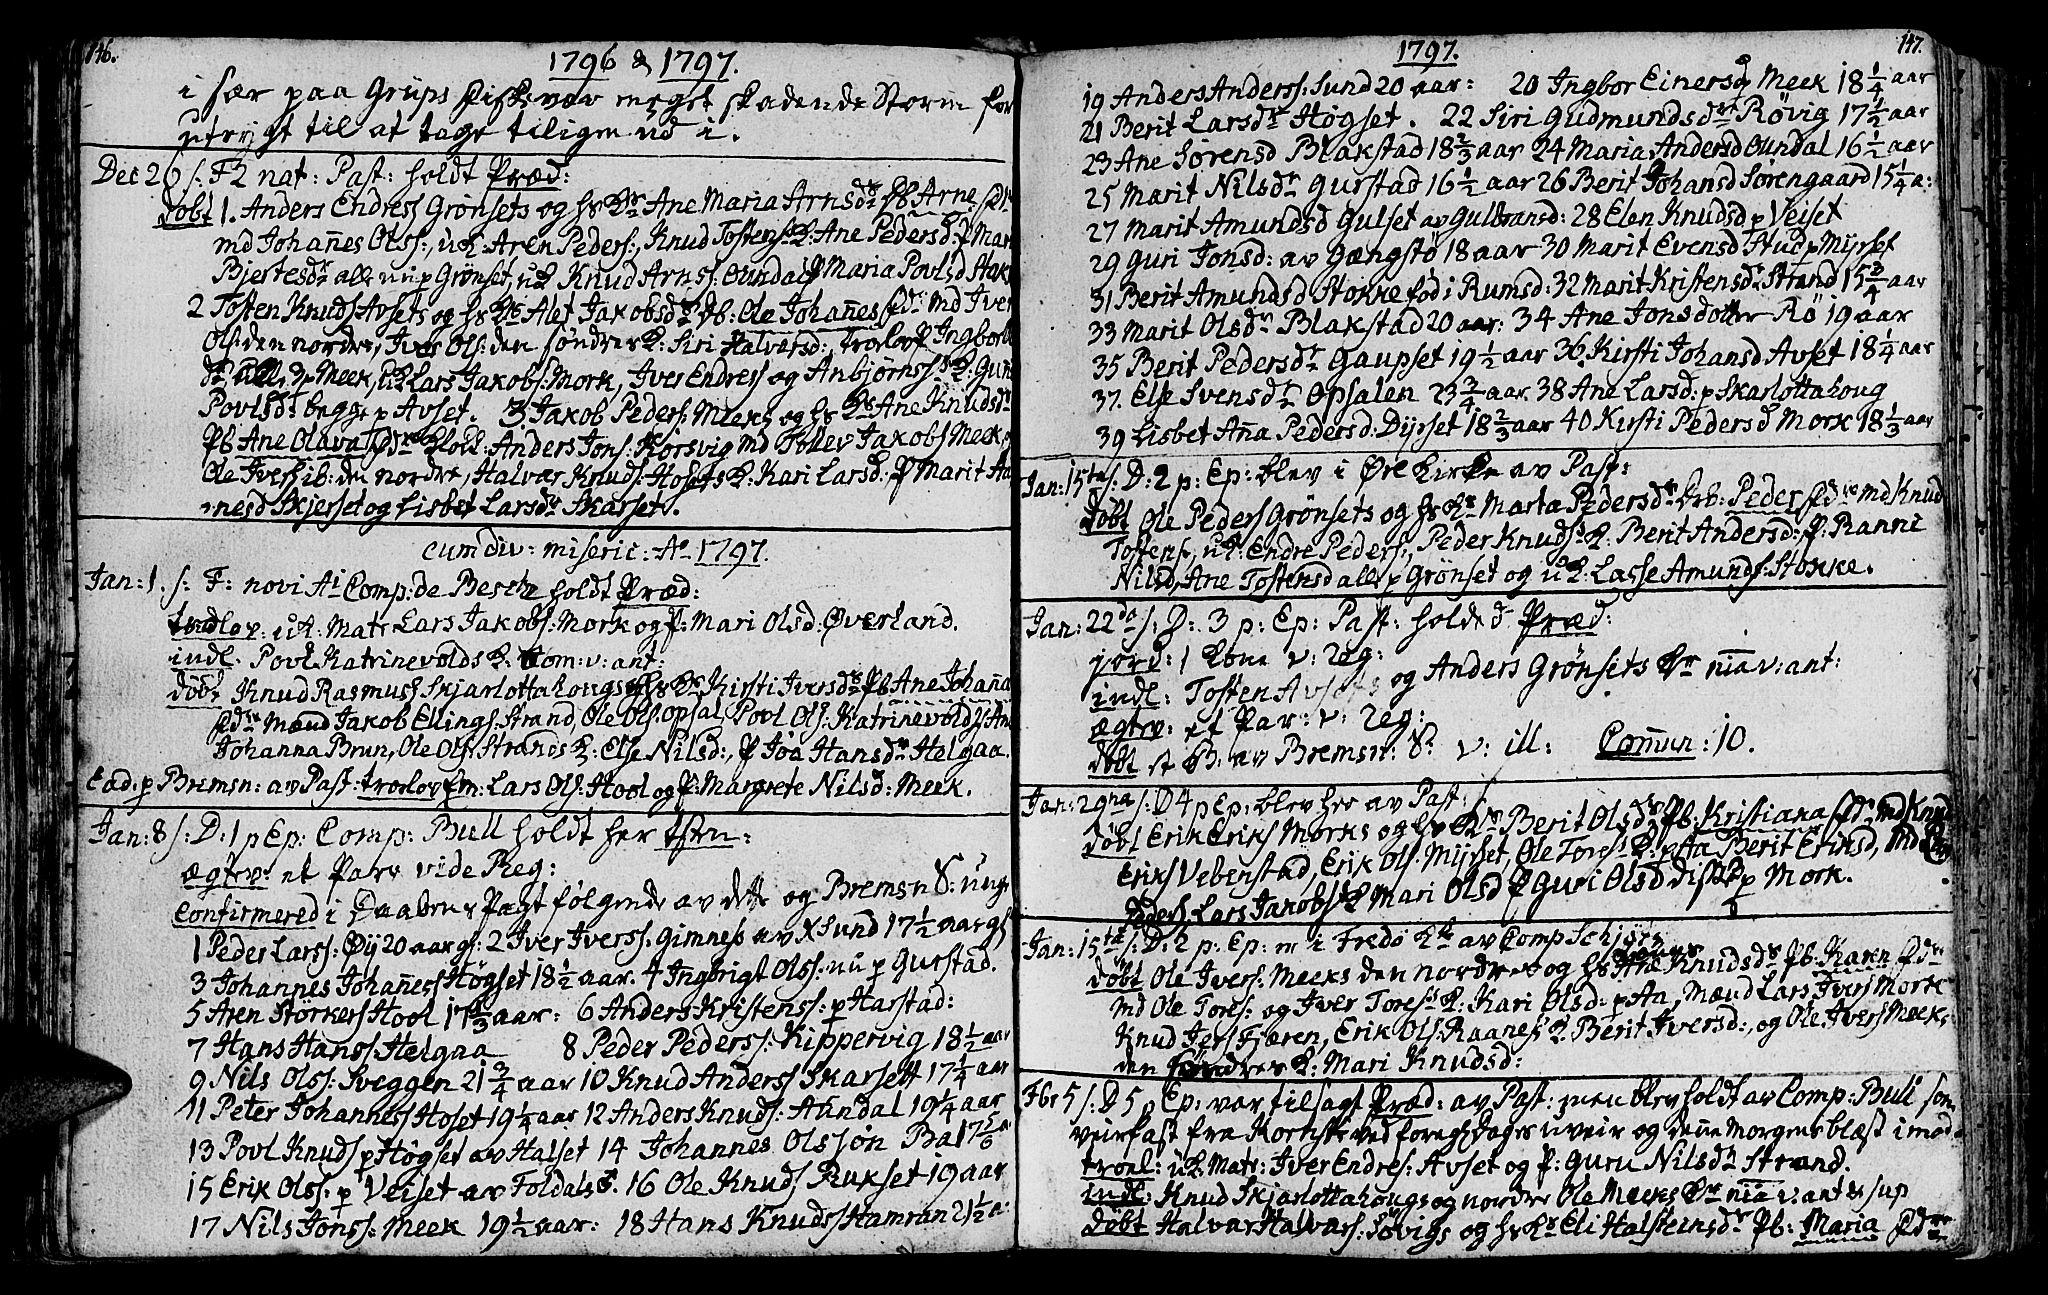 146.
1796 & 1797.
i sær paa Grips Fiskevær meget skadende Storm for
utrygt til at tage tiligen ud i.
Dec 26 s: F 2 nat: Past: holdt Præd:
døbt 1. Anders Endress Grønsets og hs Ane Maria Arnsdr Pb Arne
md Johañes Olss:, Aren Peders:, Knud Tostens Ane Pedersd: P Mari
Bjertesdr alle nu p Grønset, Knud Arnss Oundals P Maria Povlsd
2 Tosten Knuds Avsets og hs Alet Jakobsd Pb: Ole Johañes md Iver
Ols: den nordre, Iver Ols: den søndres Siri Halvarsd:, trolov P Ingbor
p Meek, Lars Jakobs: Mork, Iver Endress og Anbjørns Gun
Povlsdr begge p Avset. 3 Jakob Peders: Meeks og hs Ane Knudsdr
Pb Ane Olava Anders Jons: Korsvig md Tollev Jakobs Meek
Ole Ivers ib: den nordre, Halvar Knuds: Hosets Kari Larsd: P Marit
nesd Skjerset og Lisbet Larsdr Skarset.
cum div: miseric: Ao 1797.
Jan: 1. s: F: novi Ai Comp: de Besch holdt Præd:
trolov: Matr Lars Jakobs: Mork og P: Mari Olsd: Øverland.
indl. Povl Katrinevolds Kom: v: ant:
døbt Knud Rasmuss Skjarlottahougs og hs Kirsti Iversdr Pb Ane Johaña
Mænd Jakob Ellings: Strand, Ole Ols: Opsal, Povl Ols: Katrinevold P Ane
Johanna Brun, Ole Ols: Strands Else Nilsd:, P Joa Hansdr Helgaa.
Ead. p Bremsn: av Past: trolov Lars Ols: Hool og P: Margrete Nilsd: Meek.
Jan: 8 s: D: 1 p Ep: Comp: Bull holdt her
ægtev: et Par vide Reg:
Confirmered i Daabens Pagt følgende av dette og Bremsn S: unge
1 Peder Larss: Øÿ 20 aar g: 2 Iver Iverss: Gimness av X Sund 17 1/2 aar
3 Johannes Johañess Høgset 18 1/2 aar. 4 Ingbrigt Olss: nu p Gurstad.
5 Aren Storkers Hool 17 2/3 aar: 6 Anders Kristenss: p Harstad:
7 Hans Hanss: Helgaa 8 Peder Pederss: Kippervig 18 1/2 aar
9 Nils Olss: Sveggen 21 3/4 aar 10 Knud Anderss Skarsett 17 1/4 aar
11 Peter Johanness Hoset 19 1/4 aar 12 Anders Knuds: Aundal 19 1/4 aar
13 Povl Knuds p Høgset av Halset 14 Johannes Olssøn Ba 17 5/6
15 Erik Olss: p Veiset av Foldals. 16 Ole Knuds Rukset 19 aar
17 Nils Jonss: Meek 19 1/2 aar: 18 Hans Knuds Hamran 21 1/2 a:
1797.
147.
19 Anders Anderss: Sund 20 aar: 20 Ingbor Einersd Meek 18 1/4 aar
21 Berit Larsdr Høgset. 22 Siri Gudmundsdr Røvig 17 1/2 aar
23 Ane Sørensd Blakstad 18 2/3 aar 24 Maria Andersd Oundal 16 1/2 aar
25 Marit Nilsdr Gurstad 16 1/2 aar 26 Berit Johansd Sørengaard 15 1/4 a:
27 Marit Amundsd Gulset av Gulbransd: 28 Elen Knudsd p Veiset
29 Guri Jonsd: av Gængstø 18 aar 30 Marit Evensd Stud p Mÿrset
31 Berit Amundsd Stokke fød i Rumsd: 32 Marit Kristensdr Strand 15 3/4 aar
33 Marit Olsdr Blakstad 20 aar: 34 Ane Jonsdotter Rø 19 aar
35 Berit Pedersdr Gaupset 19 1/2 aar 36 Kirsti Johansd Avset 18 1/4 aar
37. Else Svensdr Opsalen 23 3/4 aar. 38 Ane Larsd: p Skarlottahoug
39 Lisbet Aña Pedersd: Dÿrset 18 2/3 aar 40 Kirsti Pedersd Mork 18 1/3 aar
Jan: 15ta s: D: 2 p: Ep: blev i Øre Kirke av Past:
døbt Ole Peders Grønsets og hs Marta Pedersdr Pb: Peder md Knud
Tostens, Endre Peders:, Peder Knuds Berit Andersd: P: Ranni
Nilsd, Ane Tostensd alle p Grønset og Lasse Amunds: Stokke.
Jan: 22do s: D: 3 p: Ep: Past: holded Præd:
jord: 1 Kone v: reg:
indl: Tosten Avsets og Anders Grønsets v: ant:
ægtev: et Par: v: Reg:
døbt et B: av Bremsn: S: v: ill: Comun: 10.
Jan: 29na s: D 4 p Ep: blev her av Past:
døbt Erik Eriks Morks og hs Berit Olsdr Pb: Kristiana md Knud
Eriks Vebenstad, Erik Ols: Mÿrset, Ole Tores p Aa Berit Eriksd, md
Peders Lars Jakobs Mari Olsd P Guri Olsd disse p Mork.
Jan: 15ta s: D: 2 p: Ep: m i Fredø av Comp Schjøtz
døbt Ole Ivers: Meeks den nordres og hs Knudsdr Pb: Karen
md Ole Tores: og Iver Tores Kari Olsd: p Aa, Mænd Lars Ivers Mork
Knud Fjæren, Erik Ols: Raanes Berit Iversd:, og Ole Ivers Meek,
den Søndres Mari Knudsd:
Fbr 5 s: D 5 p Ep: var tilsagt Præd: av Past: men blev holdt av Comp: Bull som
veirfast fra Kornst: ved foreg: Dages uveir og deñe morgens blæst imod
troel: Matr: Iver Endres: Avset og P: Guru Nilsdr Strand.
indl: Knud Skjarlottahougs og nordre Ole Meeks v. ant & sup
døbt Halvar Halvars: Søvigs og hs Eli Halsteinsdr Pb: Maria